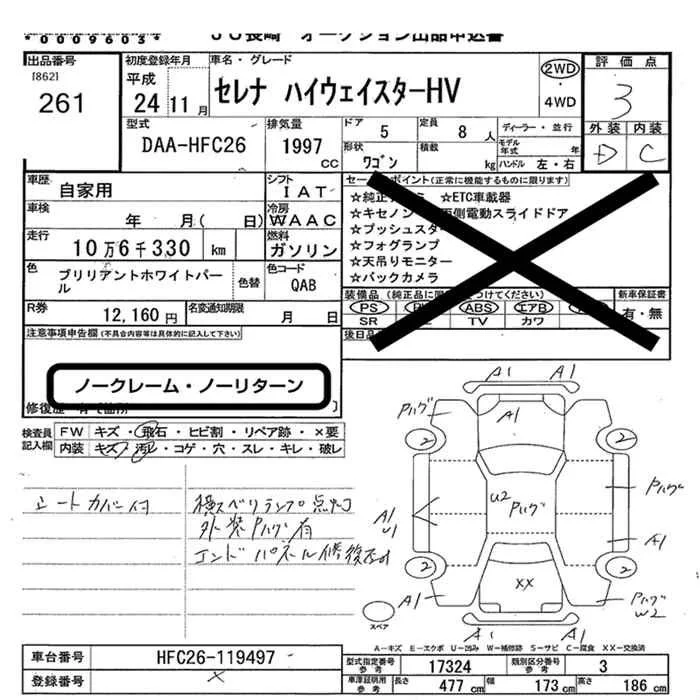 *0009603*
JU長崎 オークション出品申込書
出品番号
[862]
261
初度登録年月
平成
24 11月
車名・グレード
セレナ ハイウェイスターHV
2WD
・
4WD
評価点
3
外装 内装
D C
型式
DAA-HFC26
排気量
1997
CC
ドア 5
定員 8人
ディーラー・並行
形状
ワゴン
積載
kg
モデル年式 年
ハンドル 左・右
車歴
自家用
シフト
IAT
車検
年 月( 日)
冷房
WAAC
走行
10万6千330 km
燃料
ガソリン
色
ブリリアントホワイトパール
色替
色コード
QAB
R券
12,160円
名変通知期限
月 日
セールスポイント(正常に機能するものに限ります)
☆純正 ☆ETC車載器
☆キセノン 両側電動スライドドア
☆プッシュスター
☆フォグランプ
☆天吊りモニター
☆バックカメラ
装備品(純正品に限 つけてください)
PS ABS エアB
SR TV カワ
新車保証書
有・無
後日品
注意事項申告欄(不具合内容等は具体的に記入して下さい)
ノークレーム・ノーリターン
修復歴
検査員記入欄
FW キズ・飛石・ヒビ割・リペア跡・×要
内装 キズ・汚レ・コゲ・穴・スレ・キレ・破レ
シートカバー付
横スベリランプ点灯
外装Pハゲ有
エンドパネル修復
A1 A1
Pハゲ
A1
2 2
U2
Pハゲ
Pハゲ
A1
U1
A1
2 2
XX
A1
Pハゲ
W2
スペア
A1 A1
A-キズ E-エクボ U-凹み W-補修跡 S-サビ C-腐食 XX-交換済
車台番号
HFC26-119497
登録番号
×
型式指定番号
参考
17324
類別区分番号
参考
3
車庫証明用
参考
長さ
477 cm
幅
173 cm
高さ
186 cm